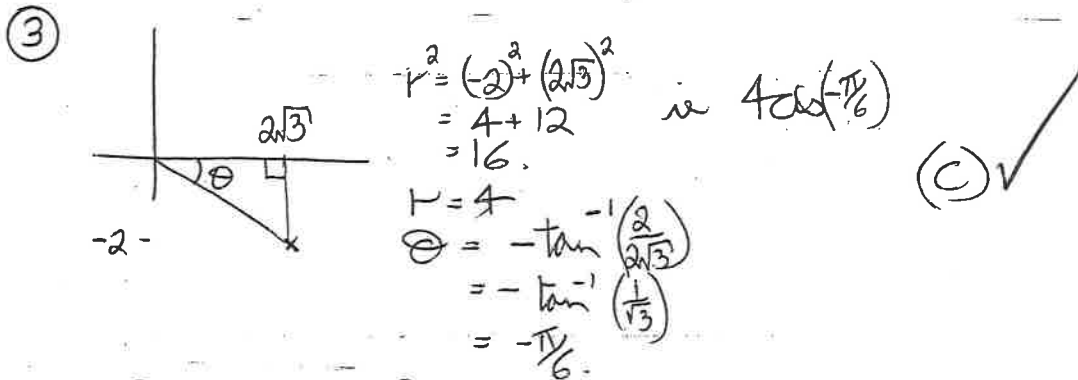 ③
2√3
θ
-2 -
r² = (-2)² + (2√3)²
= 4 + 12
= 16.
r = 4
θ = - tan⁻¹ (2/2√3)
= - tan⁻¹ (1/√3)
= -π/6.
ie 4cis(-π/6)
(C) ✓